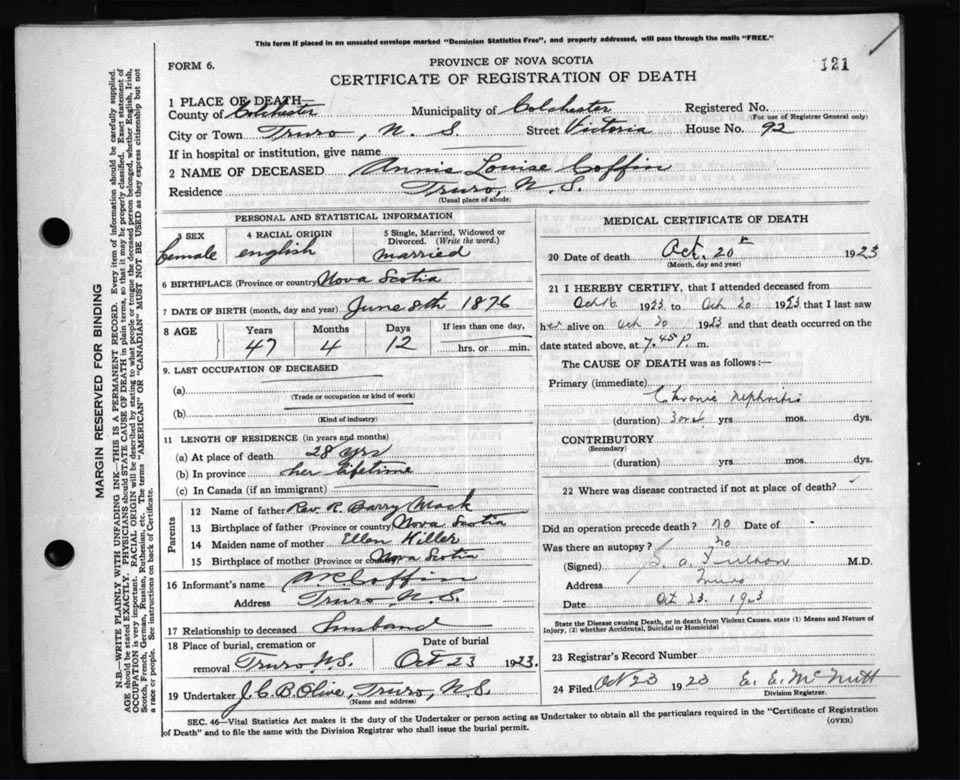 This form if placed in an unsealed envelope marked "Dominion Statistics Free", and properly addressed, will pass through the mails "FREE."
FORM 6.
PROVINCE OF NOVA SCOTIA
121
CERTIFICATE OF REGISTRATION OF DEATH
1 PLACE OF DEATH—
County of Colchester Municipality of Colchester Registered No.
(For use of Registrar General only)
City or Town Truro, N. S. Street Victoria House No. 92
If in hospital or institution, give name
2 NAME OF DECEASED Annie Louise Coffin
Residence Truro, N. S.
(Usual place of abode)
PERSONAL AND STATISTICAL INFORMATION
3 SEX 4 RACIAL ORIGIN 5 Single, Married, Widowed or Divorced. (Write the word.)
female english married
6 BIRTHPLACE (Province or country) Nova Scotia
7 DATE OF BIRTH (month, day and year) June 8th 1876
8 AGE Years Months Days If less than one day,
47 4 12 hrs. or min.
9. LAST OCCUPATION OF DECEASED
(a)
(Trade or occupation or kind of work)
(b)
(Kind of industry)
11 LENGTH OF RESIDENCE (in years and months)
(a) At place of death 28 yrs
(b) In province her lifetime
(c) In Canada (if an immigrant)
Parents
12 Name of father Rev. R. Barry Mack
13 Birthplace of father (Province or country) Nova Scotia
14 Maiden name of mother Ellen Hiller
15 Birthplace of mother (Province or country) Nova Scotia
16 Informant's name Coffin
Address Truro, N.S.
17 Relationship to deceased husband
18 Place of burial, cremation or removal Truro N.S. Date of burial Oct 23 1923.
19 Undertaker J. C. B. Olive, Truro, N.S.
(Name and address)
MEDICAL CERTIFICATE OF DEATH
20 Date of death Oct. 20th 1923
(Month, day and year)
21 I HEREBY CERTIFY, that I attended deceased from
Oct 16 1923 to Oct 20 1923 that I last saw
her alive on Oct 20 1923 and that death occurred on the
date stated above, at 7.45 P. m.
The CAUSE OF DEATH was as follows:—
Primary (immediate)
Chronic Nephritis
(duration) 3 yrs mos. dys.
CONTRIBUTORY
(Secondary)
(duration) yrs mos. dys.
22 Where was disease contracted if not at place of death?
Did an operation precede death? no Date of
Was there an autopsy? no
(Signed) S. A. Fulton M.D.
Address Truro
Date Oct 23. 1923
State the Disease causing Death, or in death from Violent Causes, state (1) Means and Nature of
Injury, (2) whether Accidental, Suicidal or Homicidal
23 Registrar's Record Number
24 Filed Oct 23 1923 E. E. McNutt
Division Registrar.
SEC. 46—Vital Statistics Act makes it the duty of the Undertaker or person acting as Undertaker to obtain all the particulars required in the "Certificate of Registration
of Death" and to file the same with the Division Registrar who shall issue the burial permit.
(OVER)
MARGIN RESERVED FOR BINDING
N.B.—WRITE PLAINLY WITH UNFADING INK—THIS IS A PERMANENT RECORD. Every item of information should be carefully supplied.
AGE should be stated EXACTLY. PHYSICIANS should STATE CAUSE OF DEATH in plain terms, so that it may be properly classified. Exact statement of
OCCUPATION is very important. RACIAL ORIGIN will be described by stating to what people or tongue the deceased person belonged, whether English, Irish,
Scotch, French, German, Russian, Ruthenian, etc. The terms "AMERICAN" OR "CANADIAN" MUST NOT BE USED as they express citizenship but not
a race or people. See instructions on back of Certificate.